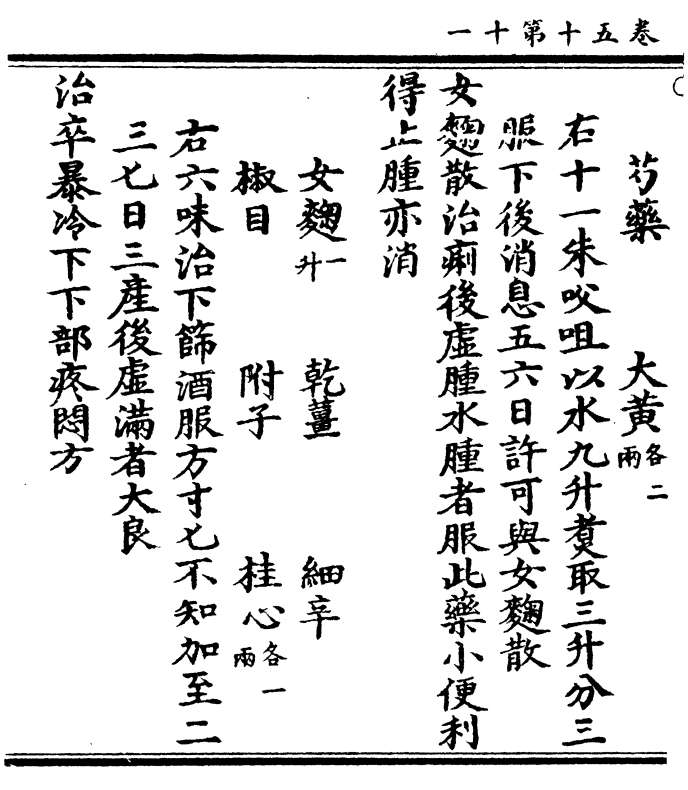 卷五十第十一
芍藥　大黃各二兩
右十一朱㕮咀以水九升煑取三升分三
服下後消息五六日許可與女麴散
女麴散治痢後虛腫水腫者服此藥小便利
得止腫亦消
女麴一升　乾薑　細辛
椒目　附子　桂心各一兩
右六味治下篩酒服方寸匕不知加至二
三七日三產後虛滿者大良
治卒暴冷下下部疼悶方